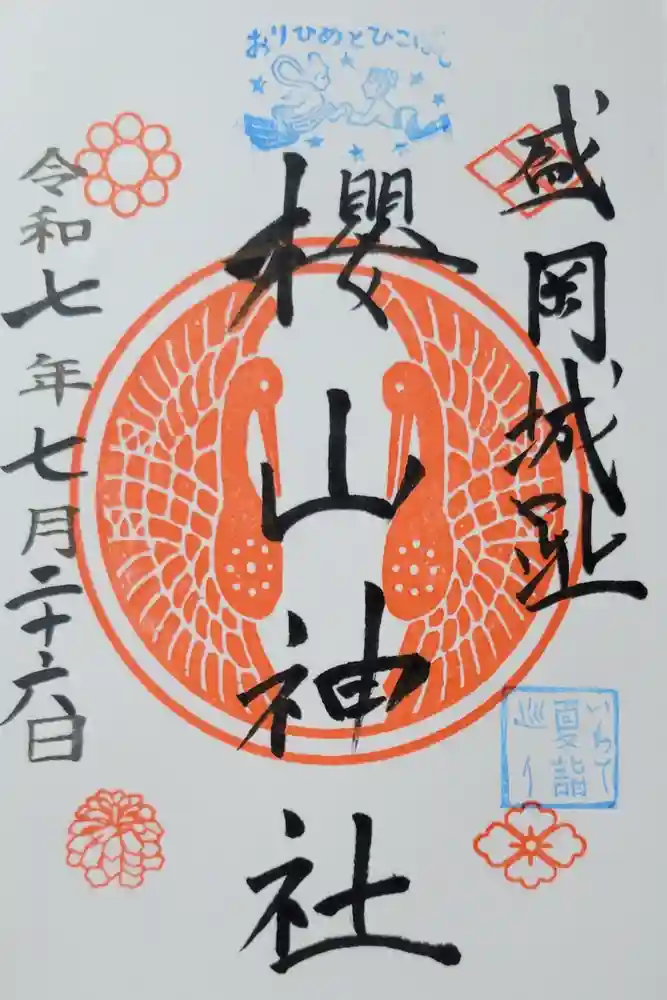 おりひめとひこぼし
盛岡城趾
櫻山神社
令和七年七月二十六日
いわて
夏詣
巡り